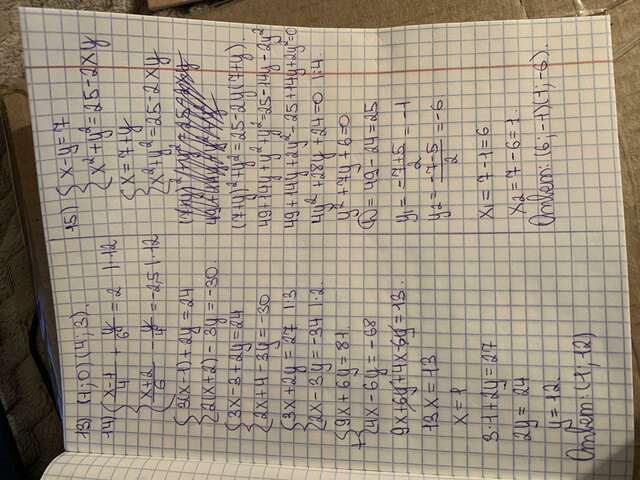 13) (1; 0) (4; 3).
14) { x-1/4 + y/6 = 2 | ·12
{ x+2/6 - y/4 = -2,5 | ·12
{ 3(x-1)+2y=24
{ 2(x+2)-3y=-30.
{ 3x-3+2y=24
{ 2x+4-3y=-30
{ 3x+2y=27 | ·3
{ 2x-3y=-34 | ·2
+ { 9x+6y=81
{ 4x-6y=-68
9x+6y+4x-6y=13.
13x=13
x=1
3·1+2y=27
2y=24
y=12.
Ответ: (1; 12)
15) { x-y=7
{ x²+y²=25-2xy
{ x=7+y
{ x²+y²=25-2xy
(7+y)²+y²=25-2y(7+y)
49+14y+y²+y²=25-14y-2y²
49+14y+2y²-25+14y+2y²=0
4y²+28y+24=0 | :4.
y²+7y+6=0
D=49-24=25
y₁=-7+5/2=-1
y₂=-7-5/2=-6
x₁=7-1=6
x₂=7-6=1.
Ответ: (6; -1)(1; -6).